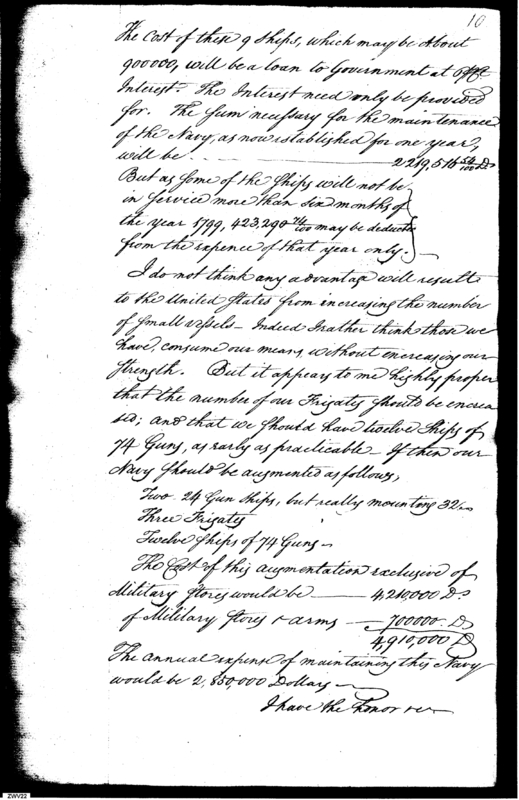 10
The Cost of these 9 Ships, which may be About
900000, will be a loan to Government at 6 ₱Ct
Interest. The Interest need only be provided
for. The sum necessary for the maintenance
of the Navy, as now established for one year,
will be 2219,516 54/100 Ds
But as some of the Ships will not be
in service more than six months of
the year 1799, 423,290 74/100 may be deducted
from the expence of that year only.
I do not think any advantage will result
to the United States from increasing the number
of small vessels — Indeed I rather think those we
have, consume our means, without encreasing our
strength. But it appears to me highly proper
that the number of our Frigates should be encrea
sed; and that we should have twelve Ships of
74 Guns, as early as practicable — If then our
Navy should be augmented as follows,
Two 24 Gun Ships, but really mounting 32
Three Frigates
Twelve Ships of 74 Guns —
The Cost of this augmentation exclusive of
Military Stores would be — 4,210,000 Ds
of Military Stores & arms — 700000 Ds
4,910,000 Ds
The annual expense of maintaining this Navy
would be 2,850,000 Dollars —
I have the honor &c
ZWV22